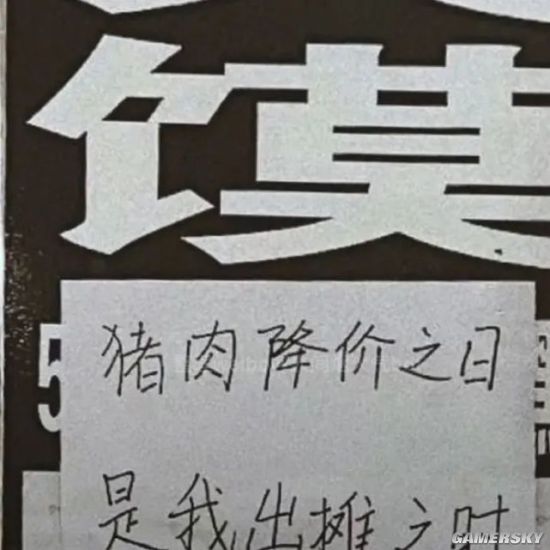 馍
猪肉降价之日
5
是我出摊之时
GAMERSKY